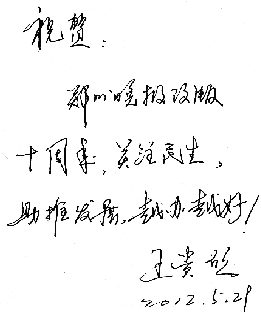 祝贺:
郑州晚报改版
十周年,关注民生,
助推发展,越办越好!
王贵欣
2012.5.29